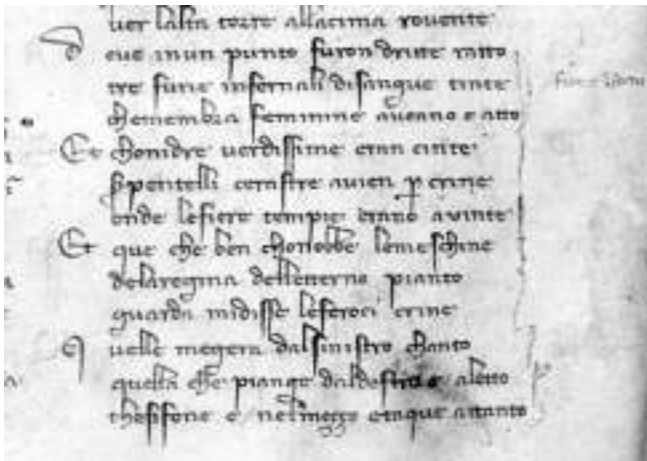 ver lalta torre allacima rovente
Dove inun punto furon dritte ratto
tre furie infernali disangue tinte
chemembra feminine aveano e atto
Et chonidre verdissime eran cinte
serpentelli ceraste avien per crine
onde lefiere tempie erano avinte
Et que che ben chonobbe lemeschine
delaregina delletterno pianto
guarda midisse leferoci erine
Quelle megera dalsinistro chanto
quella che piange daldestro e aletto
thesifone e nelmezzo etaque attanto